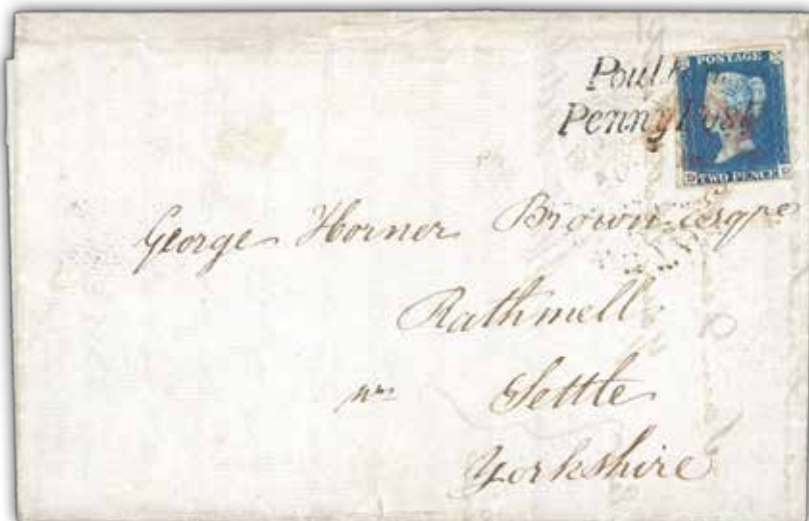 Penny Post
POSTAGE
TWO PENCE
George Horner Brown Esqre
Rathmell
nr Settle
Yorkshire